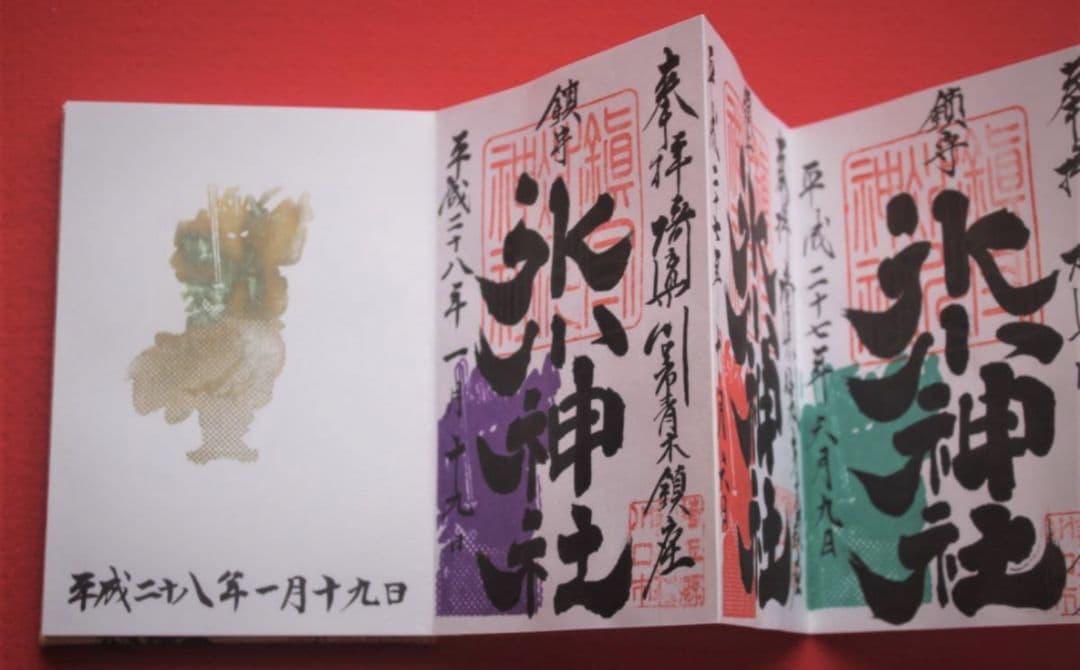 奉拝
鎮守
氷川神社
平成二十七年六月九日
氷川神社
奉拝 埼玉県川口市青木鎮座
鎮守
氷川神社
平成二十八年一月十九日
平成二十八年一月十九日